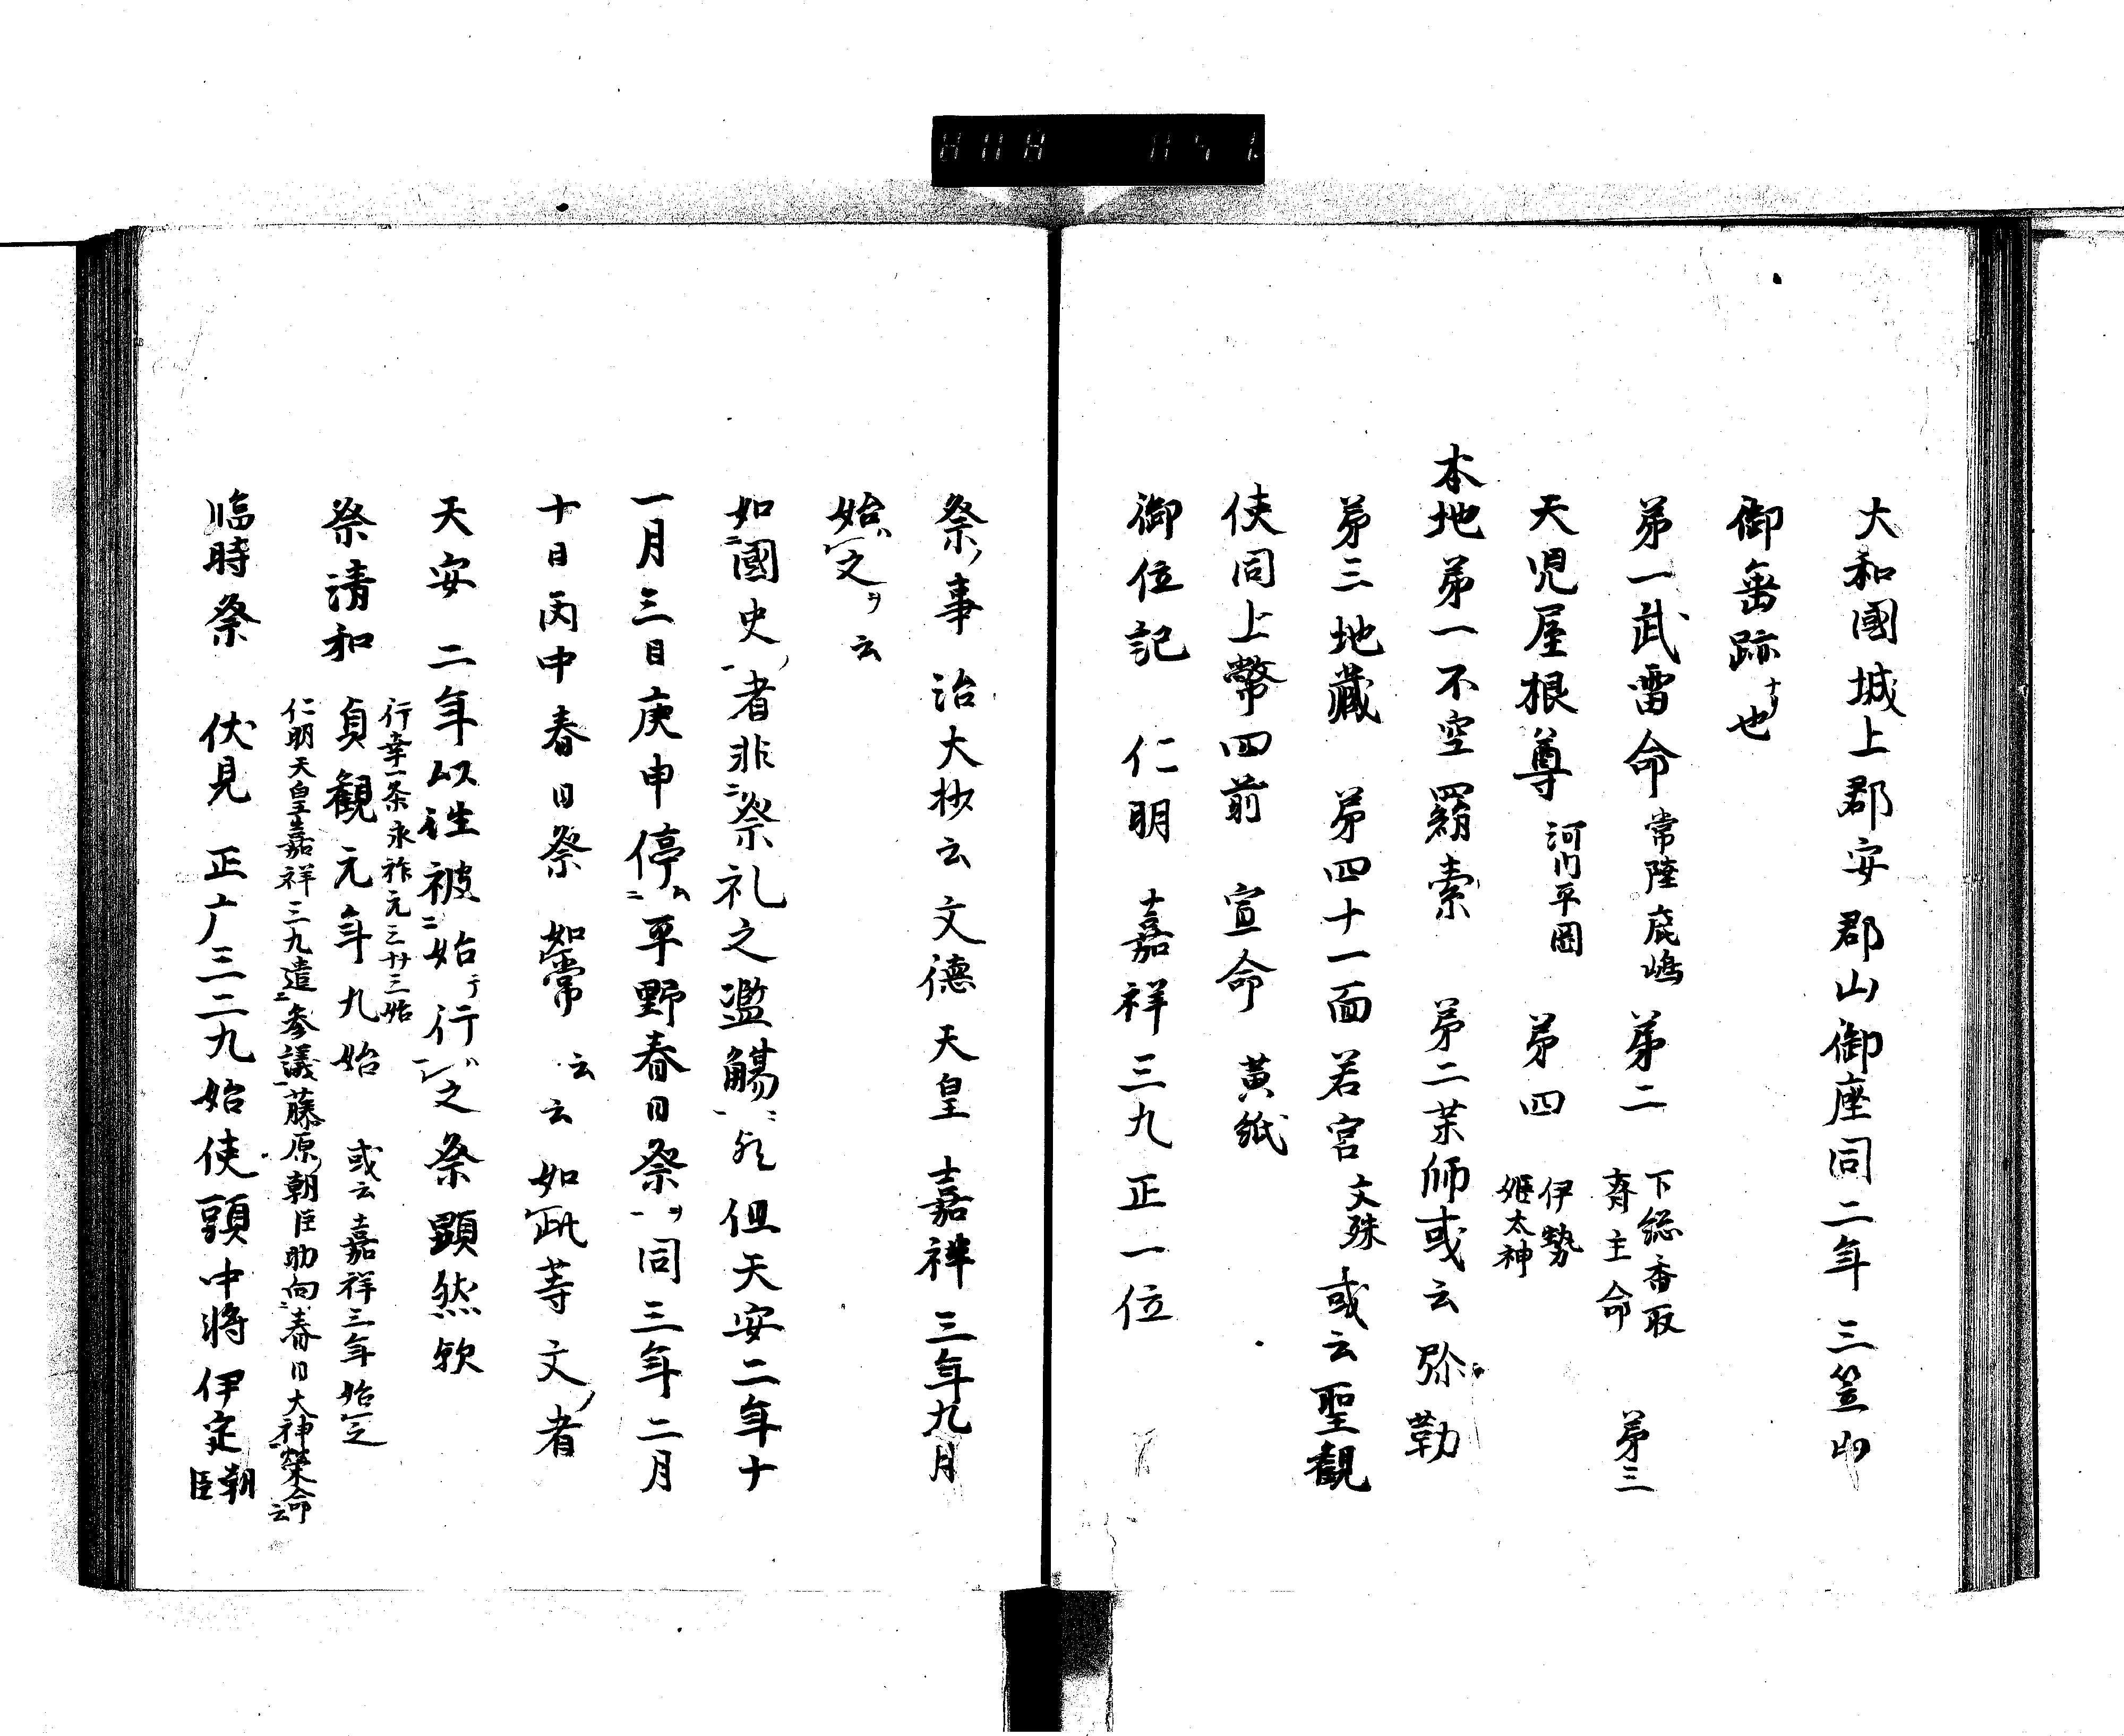 大和國城上郡安郡山御座同二年三笠山
御垂跡十一月也
第一武雷命常陸鹿嶋 第二下総香取齊主命 第三
天児屋根尊河内平岡 第四伊勢姫太神
本地第一不空羂索 第二薬師或云弥勒
第三地蔵 第四十一面 若宮文殊或云聖観
使同上幣四前 宣命 黄紙
御位記 仁明 嘉祥三九正一位
祭事 治大抄云文德天皇 嘉祥三年九月
始之云
如國史者非祭礼之濫觴 但天安二年十
一月三日庚申停平野春日祭同三年二月
十日丙申春日祭如常云云如此等文者
天安二年以往被始行之祭顕然欤
行幸一条永祚元三廿三始
祭清和 貞観元年九始 或云嘉祥三年始之
仁明天皇嘉祥三九遣参議藤原朝臣助向春日大神策命云
臨時祭 伏見 正广三二九始使頭中将伊定朝臣